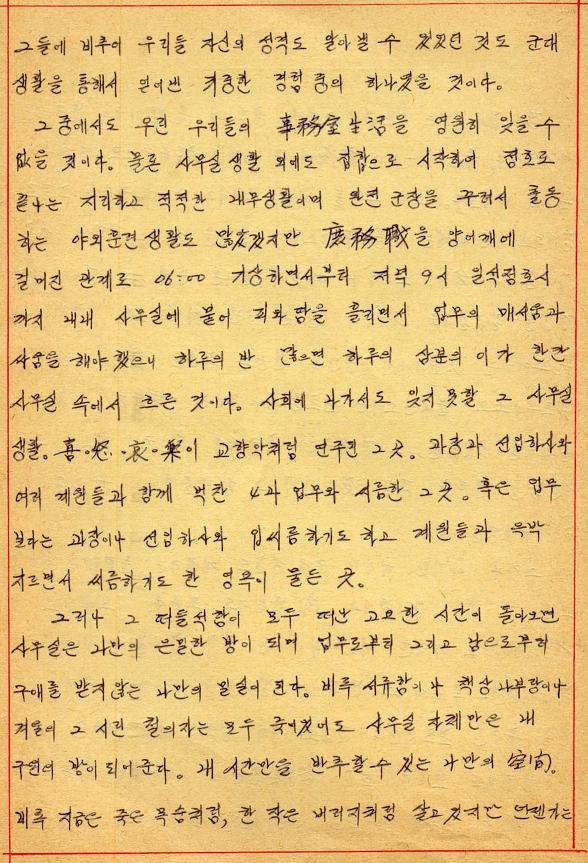 그들에 비추어 우리들 자신의 성격도 알아낼 수 있었던 것도 군대
생활을 통해서 얻어낸 귀중한 경험 중의 하나였을 것이다.
그중에서도 우린 우리들의 事務室生活을 영원히 잊을 수
없을 것이다. 물론 사무실 생활 외에도 집합으로 시작하여 점호로
끝나는 지리하고 적적한 내무생활이며 완전 군장을 꾸려서 출동
하는 야외훈련 생활도 많았겠지만 庶務職을 양어깨에
걸머진 관계로 06:00 기상하면서부터 저녁 9시 일석점호시
까지 내내 사무실에 붙어 피와 땀을 흘리면서 업무의 매서움과
싸움을 해야 했으니 하루의 반 많으면 하루의 삼분의 이가 한칸
사무실 속에서 흐른 것이다. 사회에 나가서도 잊지 못할 그 사무실
생활. 喜·怒·哀·樂이 교향악처럼 연주된 그곳. 과장과 선임하사와
여러 계원들과 함께 벅찬 4과 업무와 씨름한 그곳. 혹은 업무
보다는 과장이나 선임하사와 입씨름하기도 하고 계원들과 윽박
지르면서 씨름하기도 한 영욕이 물든 곳.
그러나 그 떠들석함이 모두 떠난 고요한 시간이 돌아오면
사무실은 나만의 은밀한 방이 되며 업무로부터 그리고 남으로부터
구애를 받지 않는 나만의 밀실이 된다. 비록 서류함이나 책상 나부랑이나
겨울의 그 시린 철의자는 모두 죽어있어도 사무실 자체만은 내
구원의 방이 되어준다. 내 시간만을 반추할 수 있는 나만의 空間.
비록 지금은 죽은 목숨처럼, 한 작은 버러지처럼 살고 있지만 언젠가는